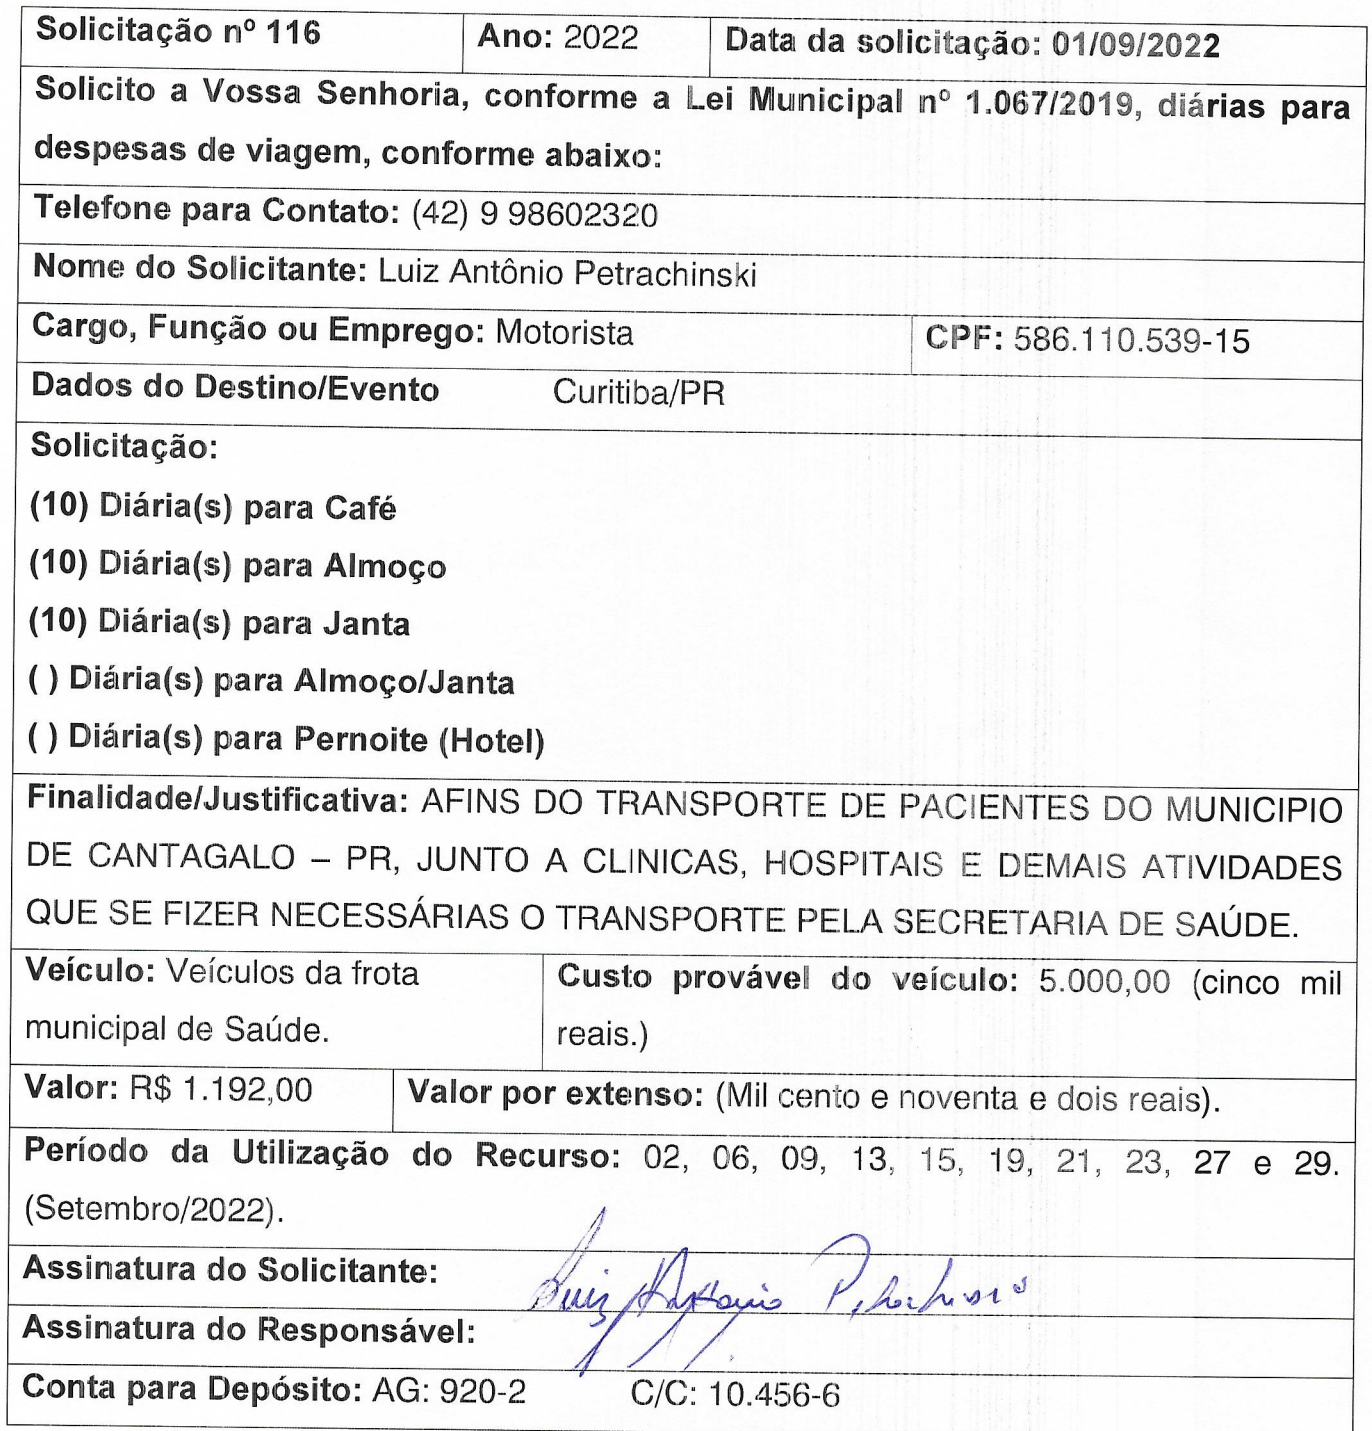 Solicitação nº 116 Ano: 2022 Data da solicitação: 01/09/2022
Solicito a Vossa Senhoria, conforme a Lei Municipal nº 1.067/2019, diárias para
despesas de viagem, conforme abaixo:
Telefone para Contato: (42) 9 98602320
Nome do Solicitante: Luiz Antônio Petrachinski
Cargo, Função ou Emprego: Motorista CPF: 586.110.539-15
Dados do Destino/Evento Curitiba/PR
Solicitação:
(10) Diária(s) para Café
(10) Diária(s) para Almoço
(10) Diária(s) para Janta
( ) Diária(s) para Almoço/Janta
( ) Diária(s) para Pernoite (Hotel)
Finalidade/Justificativa: AFINS DO TRANSPORTE DE PACIENTES DO MUNICIPIO
DE CANTAGALO – PR, JUNTO A CLINICAS, HOSPITAIS E DEMAIS ATIVIDADES
QUE SE FIZER NECESSÁRIAS O TRANSPORTE PELA SECRETARIA DE SAÚDE.
Veículo: Veículos da frota
municipal de Saúde.
Custo provável do veículo: 5.000,00 (cinco mil
reais.)
Valor: R$ 1.192,00 Valor por extenso: (Mil cento e noventa e dois reais).
Período da Utilização do Recurso: 02, 06, 09, 13, 15, 19, 21, 23, 27 e 29.
(Setembro/2022).
Assinatura do Solicitante: Luiz Antonio
Assinatura do Responsável:
Conta para Depósito: AG: 920-2 C/C: 10.456-6